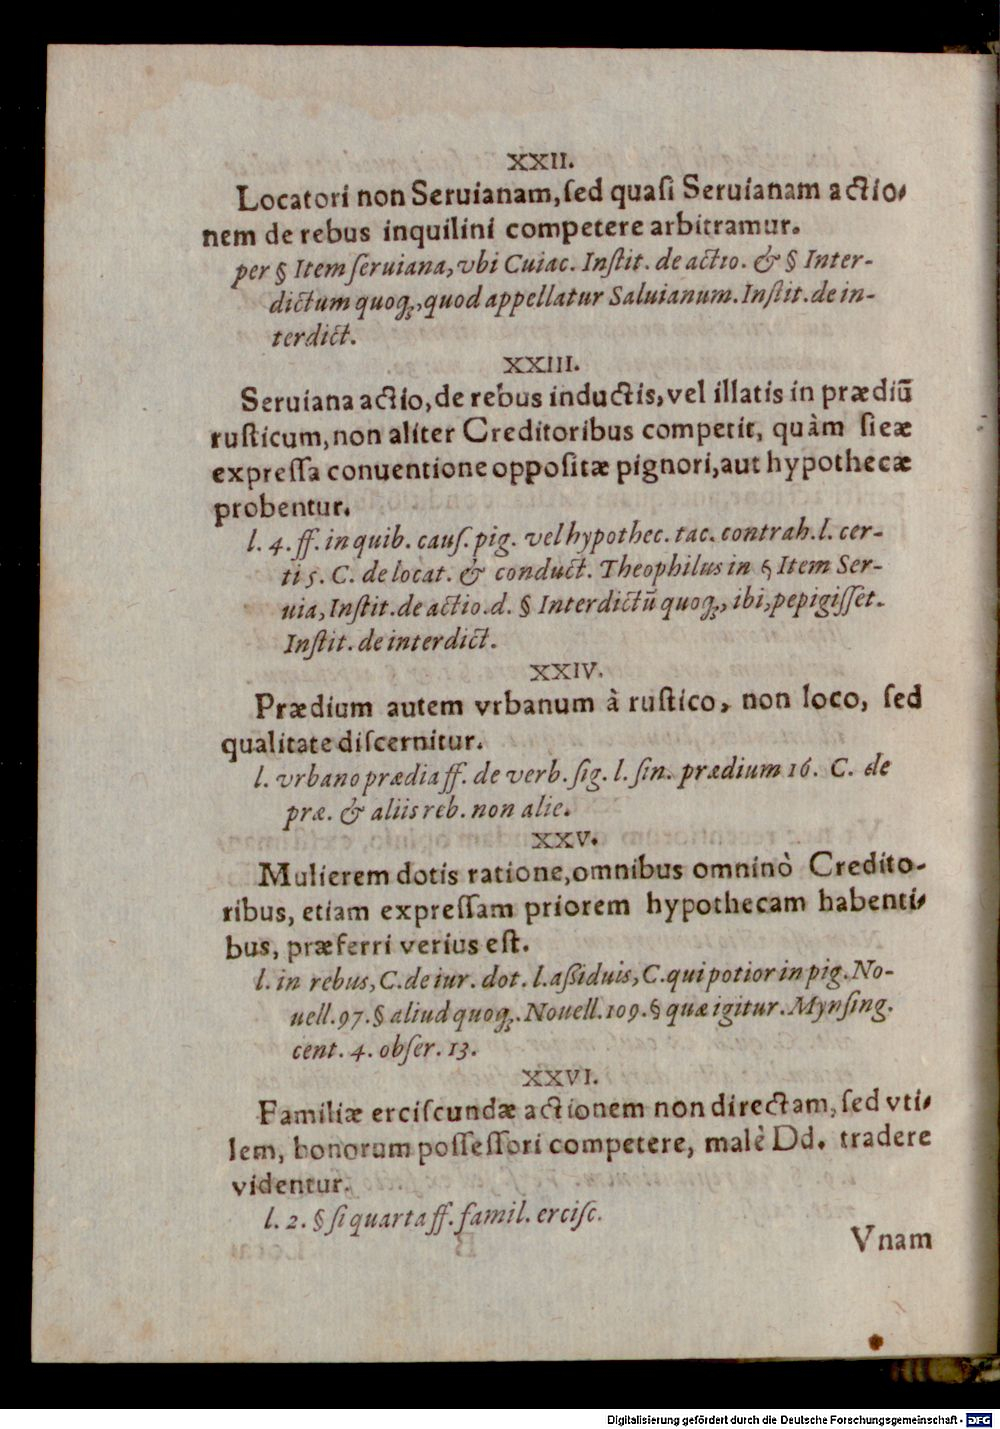 XXII.
Locatori non Seruianam, ſed quaſi Seruianam actio-
nem de rebus inquilini competere arbitramur.
per § Item ſeruiana, vbi Cuiac. Inſtit. de actio. & § Inter-
dictum quoq;, quod appellatur Saluianum. Inſtit. de in-
terdict.
XXIII.
Seruiana actio, de rebus inductis, vel illatis in prædiũ
ruſticum, non aliter Creditoribus competit, quàm ſi eæ
expreſſa conuentione oppoſitæ pignori, aut hypothecæ
probentur.
l. 4. ff. in quib. cauſ. pig. vel hypothec. tac. contrah. l. cer-
ti 5. C. de locat. & conduct. Theophilus in § Item Ser-
uia, Inſtit. de actio. d. § Interdictũ quoq;, ibi, pepigiſſet.
Inſtit. de interdict.
XXIV.
Prædium autem vrbanum à ruſtico, non loco, ſed
qualitate diſcernitur.
l. vrbano prædia ff. de verb. ſig. l. ſin. prædium 16. C. de
præ. & aliis reb. non alie.
XXV.
Mulierem dotis ratione, omnibus omninò Credito-
ribus, etiam expreſſam priorem hypothecam habenti-
bus, præferri verius eſt.
l. in rebus, C. de iur. dot. l. aßiduis, C. qui potior in pig. No-
uell. 97. § aliud quoq;. Nouell. 109. § quæ igitur. Mynſing.
cent. 4. obſer. 13.
XXVI.
Familiæ erciſcundæ actionem non directam, ſed vti-
lem, bonorum poſſeſſori competere, malè Dd. tradere
videntur.
l. 2. § ſi quarta ff. famil. erciſc.
Vnam
Digitalisierung gefördert durch die Deutsche Forschungsgemeinschaft - DFG